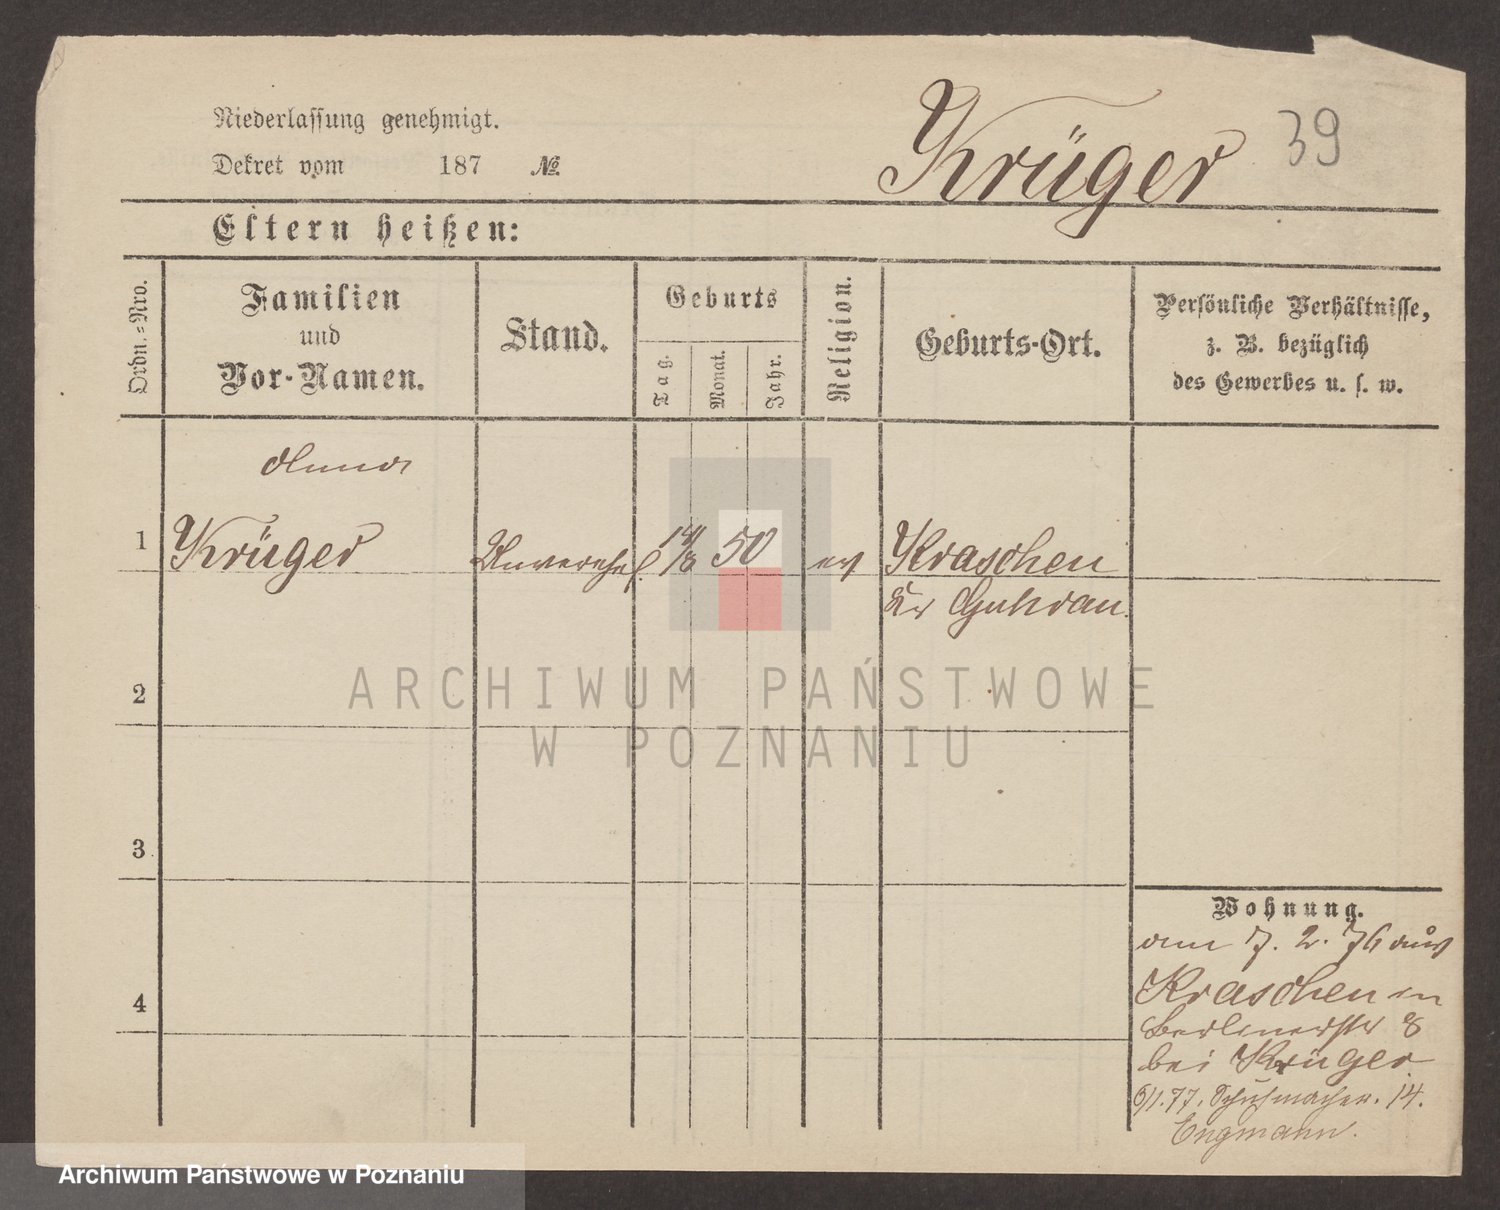 Niederlassung genehmigt.
Dekret vom 187 №
Krüger
39
Eltern heißen:
Ordn.=Nro.
Familien
und
Vor-Namen.
Stand.
Geburts
Tag.
Monat.
Jahr.
Religion.
Geburts-Ort.
Persönliche Verhältnisse,
z. B. bezüglich
des Gewerbes u. s. w.
1
Krüger
Unverehel.
50
ev
Kraschen
Kr Guhrau.
2
3
4
Wohnung.
am 7. 2. 76 aus
Kraschen in
Berlinerstr 8
bei Krüger
6/1.77. Schuhmacher. 14.
Engmann.
ARCHIWUM PAŃSTWOWE
W POZNANIU
Archiwum Państwowe w Poznaniu